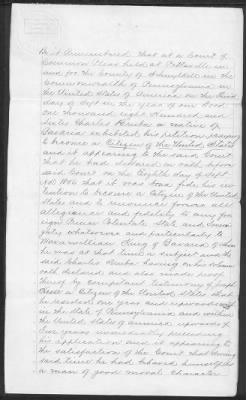 Be it Remembered that at a Court of
Common Pleas held at Pottsville in
and for the County of Schuylkill in the
Commonwealth of Pennsylvania in
the United States of America on the
day of Sept in the year of our Lord
one thousand eight hundred and
Charles a native of
Bavaria exhibited his petition praying
to become a Citizen of the United States
and it appearing to the said Court
that he had declared on oath before
said Court on the Eighth day of Sept
AD that it was bona fide his in
tention to become a Citizen of the United
States and to renounce forever all
allegiance and fidelity to any for
eign Prince Potentate State and Sover
eignty whatsoever and particularly to
Maximillian King of Bavaria of whom
he was at that time a subject and the
said Charles having on his solemn
oath declared and also made proof
thereof by competent testimony of Joseph
a Citizen of the United States that
he resided one year and upwards
in the State of Pennsylvania and within
the United States of America upwards of
five years immediately preceding
his application and it appearing to
the satisfaction of the Court that during
said time he had behaved himself as
a man of good moral character